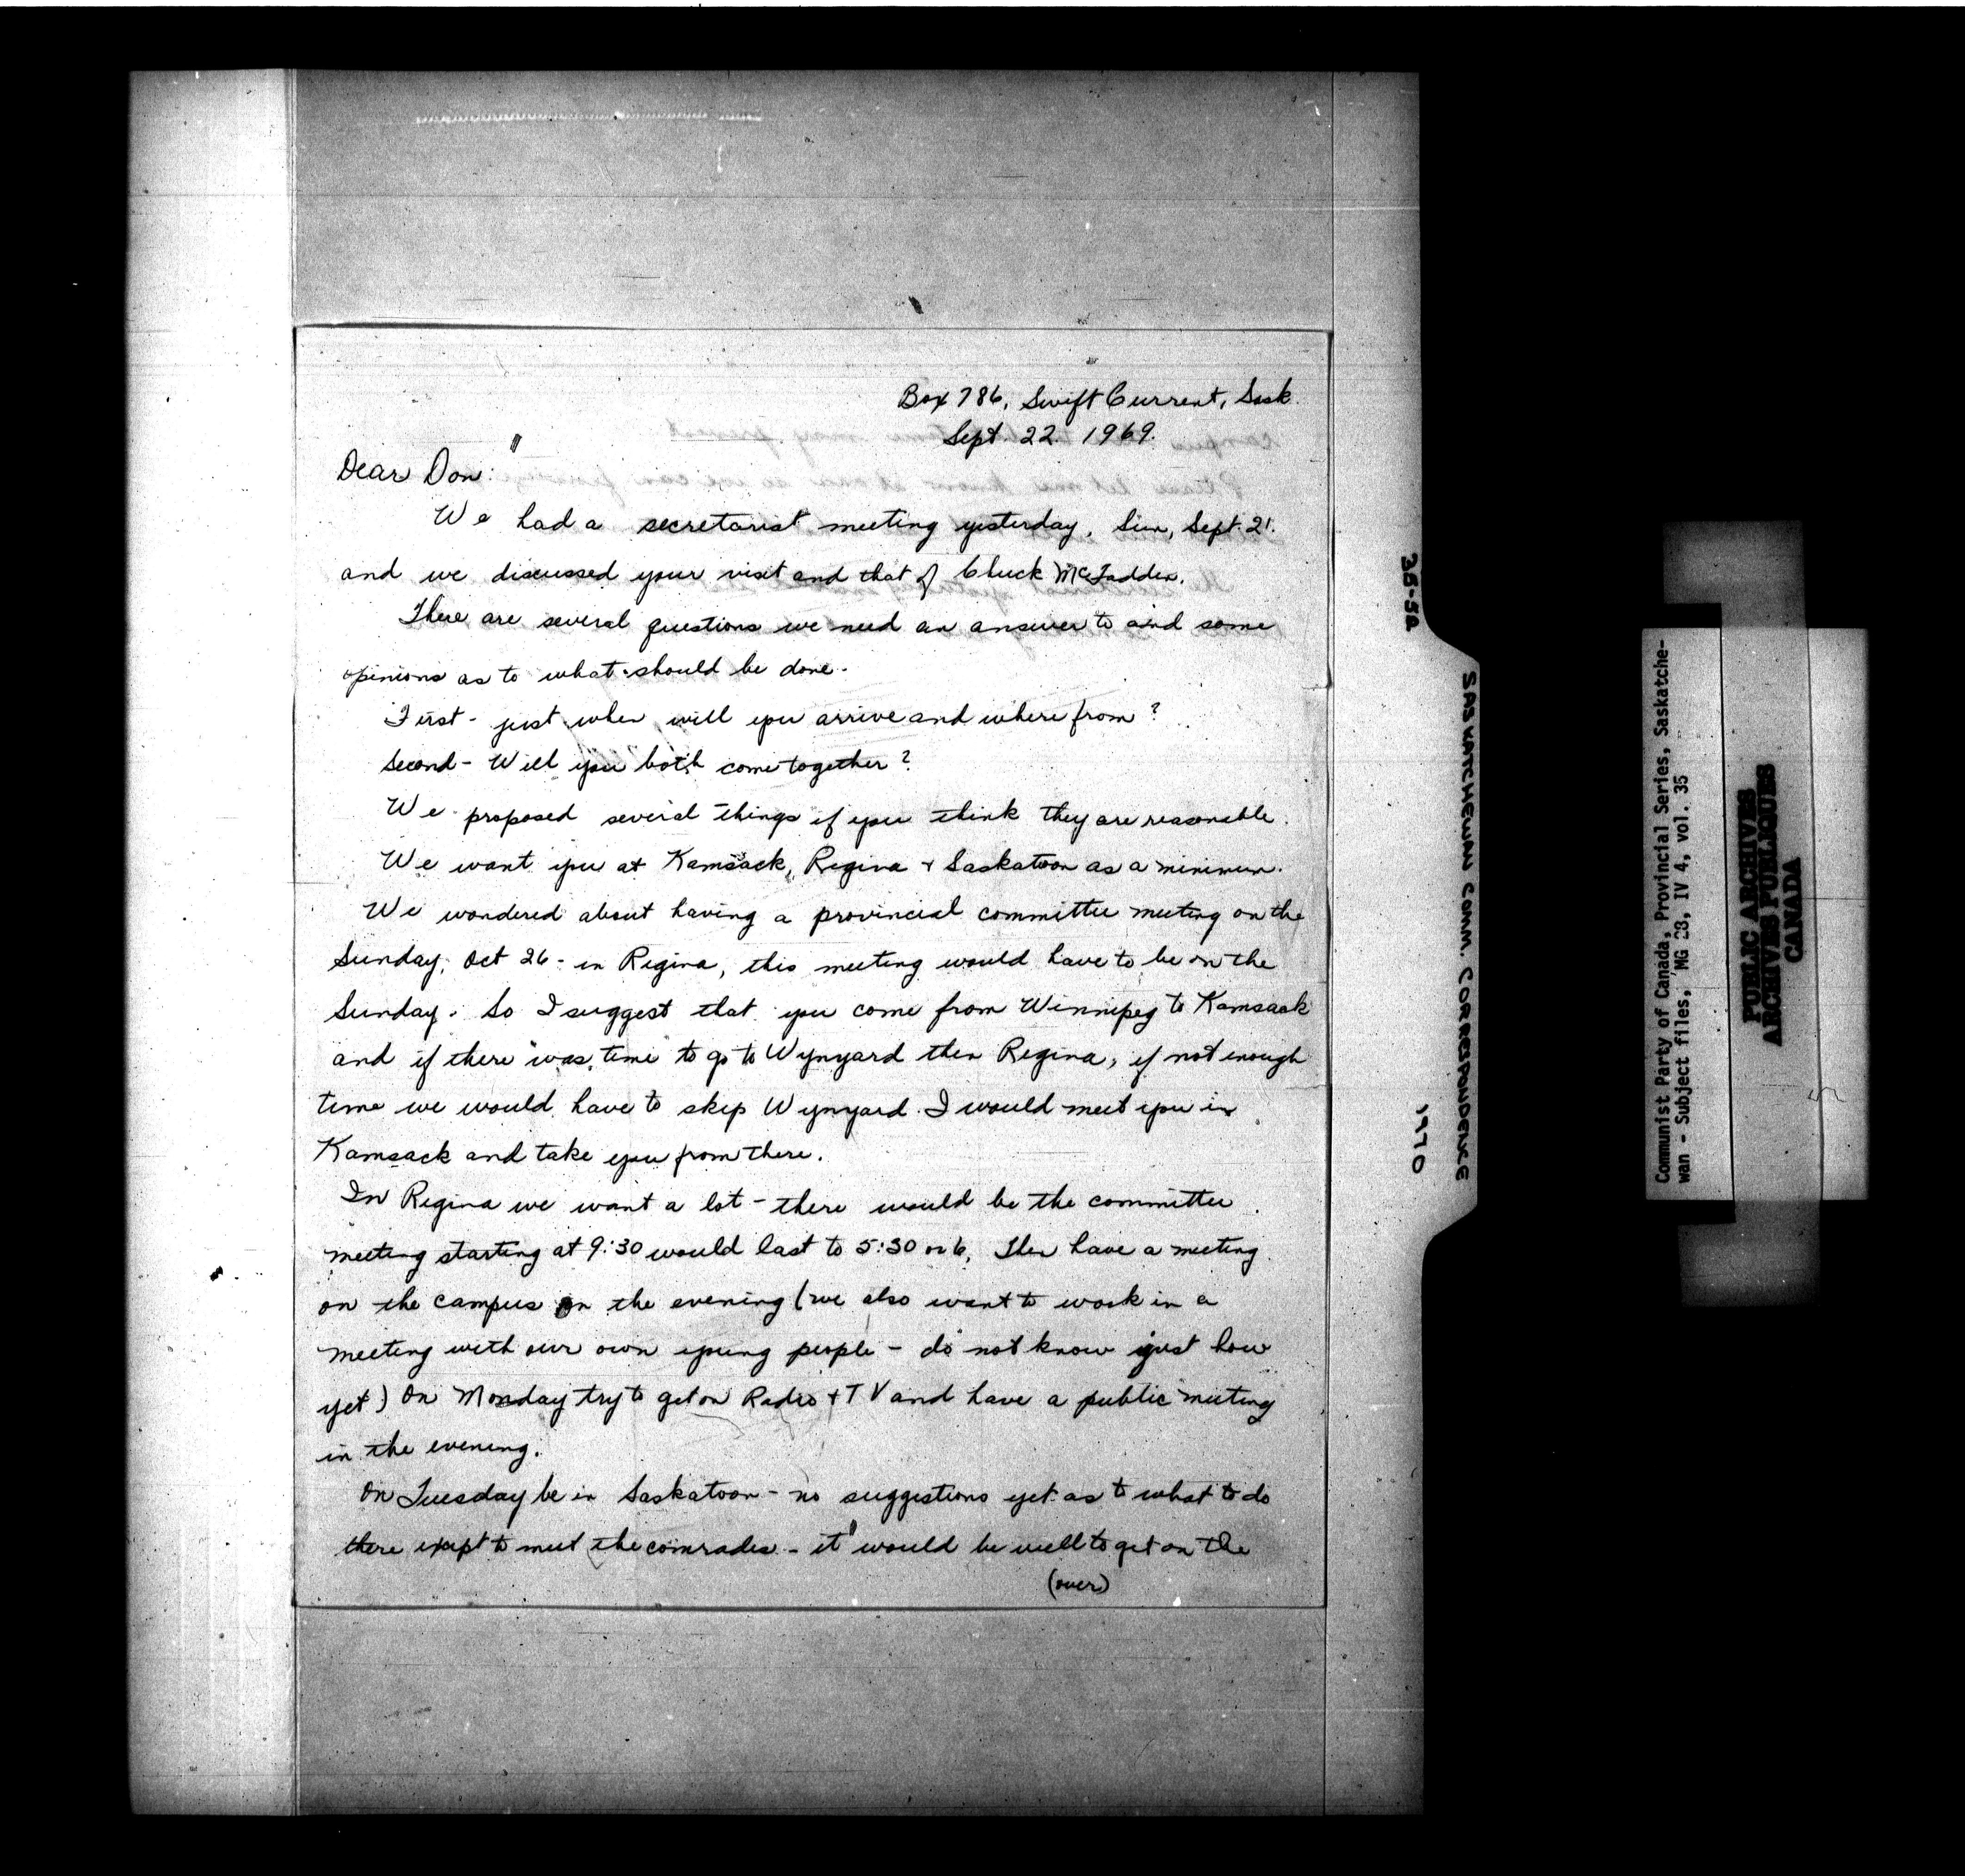 Box 786, Swift Current, Sask.
Sept. 22. 1969.
Dear Don:
We had a secretariat meeting yesterday, Sun, Sept. 21.
and we discussed your visit and that of Chuck McFadden.
There are several questions we need an answer to and some
opinions as to what should be done.
First - just when will you arrive and where from?
Second - Will you both come together?
We proposed several things if you think they are reasonable.
We want you at Kamsack, Regina + Saskatoon as a minimum.
We wondered about having a provincial committee meeting on the
Sunday, Oct 26 - in Regina, this meeting would have to be on the
Sunday. So I suggest that you come from Winnipeg to Kamsack
and if there was time to go to Wynyard then Regina, if not enough
time we would have to skip Wynyard. I would meet you in
Kamsack and take you from there.
In Regina we want a lot - there would be the committee
meeting starting at 9:30 would last to 5:30 or 6, Then have a meeting
on the campus in the evening (we also want to work in a
meeting with our own young people - do not know just how
yet) On Monday try to get on Radio + TV and have a public meeting
in the evening.
On Tuesday be in Saskatoon - no suggestions yet as to what to do
there exept to meet the comrades - it would be well to get on the
(over)
35-52
SASKATCHEWAN COMM. CORRESPONDENCE
1970
Communist Party of Canada, Provincial Series, Saskatche-
wan - Subject files, MG 28, IV 4, vol. 35
PUBLIC ARCHIVES
ARCHIVES PUBLIQUES
CANADA